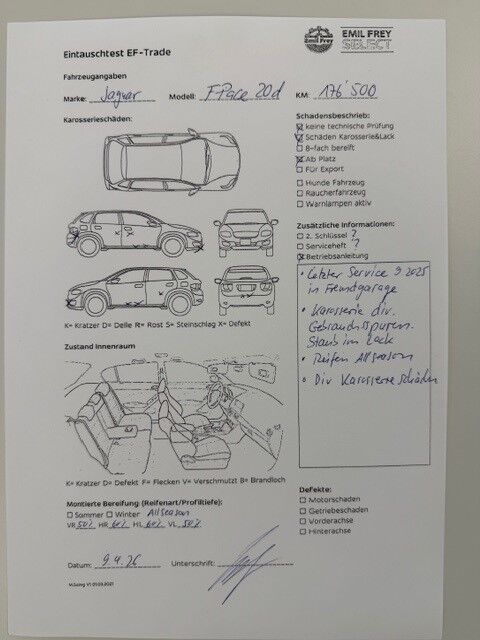 EMIL FREY
SELECT
Emil Frey
Eintauschtest EF-Trade
Fahrzeugangaben
Marke: Jaguar Modell: F-Pace 20d KM: 176'500
Karosserieschäden:
Schadensbeschrieb:
keine technische Prüfung
Schäden Karosserie&Lack
8-fach bereift
Ab Platz
Für Export
Hunde Fahrzeug
Raucherfahrzeug
Warnlampen aktiv
Zusätzliche Informationen:
2. Schlüssel ?
Serviceheft ?
Betriebsanleitung
• Letzter Service 9.2025
in Fremdgarage
• Karosserie div.
Gebrauchsspuren.
Staub im Lack
• Reifen Allseason
• Div Karosserieschäden
K= Kratzer D= Delle R= Rost S= Steinschlag X= Defekt
Zustand Innenraum
K= Kratzer D= Defekt F= Flecken V= Verschmutzt B= Brandloch
Montierte Bereifung (Reifenart/Profiltiefe):
Sommer Winter Allseason
VR 50% HR 60% HL 60% VL 50%
Defekte:
Motorschaden
Getriebeschaden
Vorderachse
Hinterachse
Datum: 9.4.26 Unterschrift: